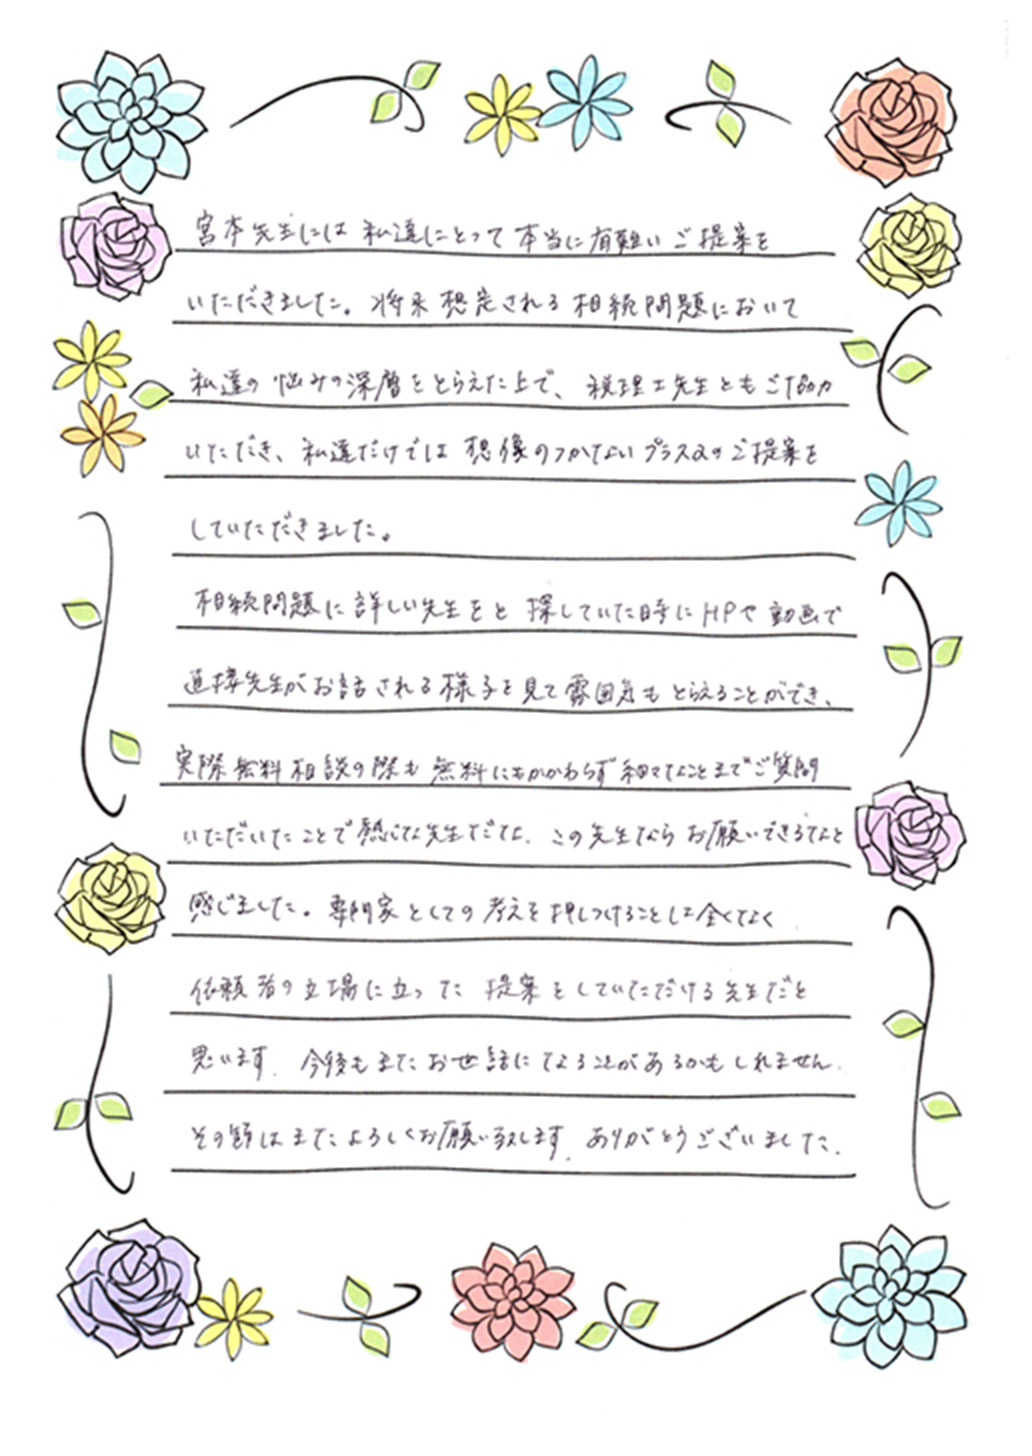 宮本先生には私達にとって本当に有難いご提案を
いただきました。将来想定される相続問題において
私達の悩みの深層をとらえた上で、税理士先生ともご協力
いただき、私達だけでは想像のつかないプラスαのご提案を
していただきました。
相続問題に詳しい先生をと探していた時にHPや動画で
直接先生がお話される様子を見て雰囲気もとらえることができ、
実際無料相談の際も無料にもかかわらず細々なことまでご質問
いただいたことで熱心な先生だな、この先生ならお願いできるなと
感じました。専門家としての考えを押しつけることは全くなく
依頼者の立場に立った提案をしていただける先生だと
思います。今後もまたお世話になることがあるかもしれません。
その節はまたよろしくお願い致します。ありがとうございました。